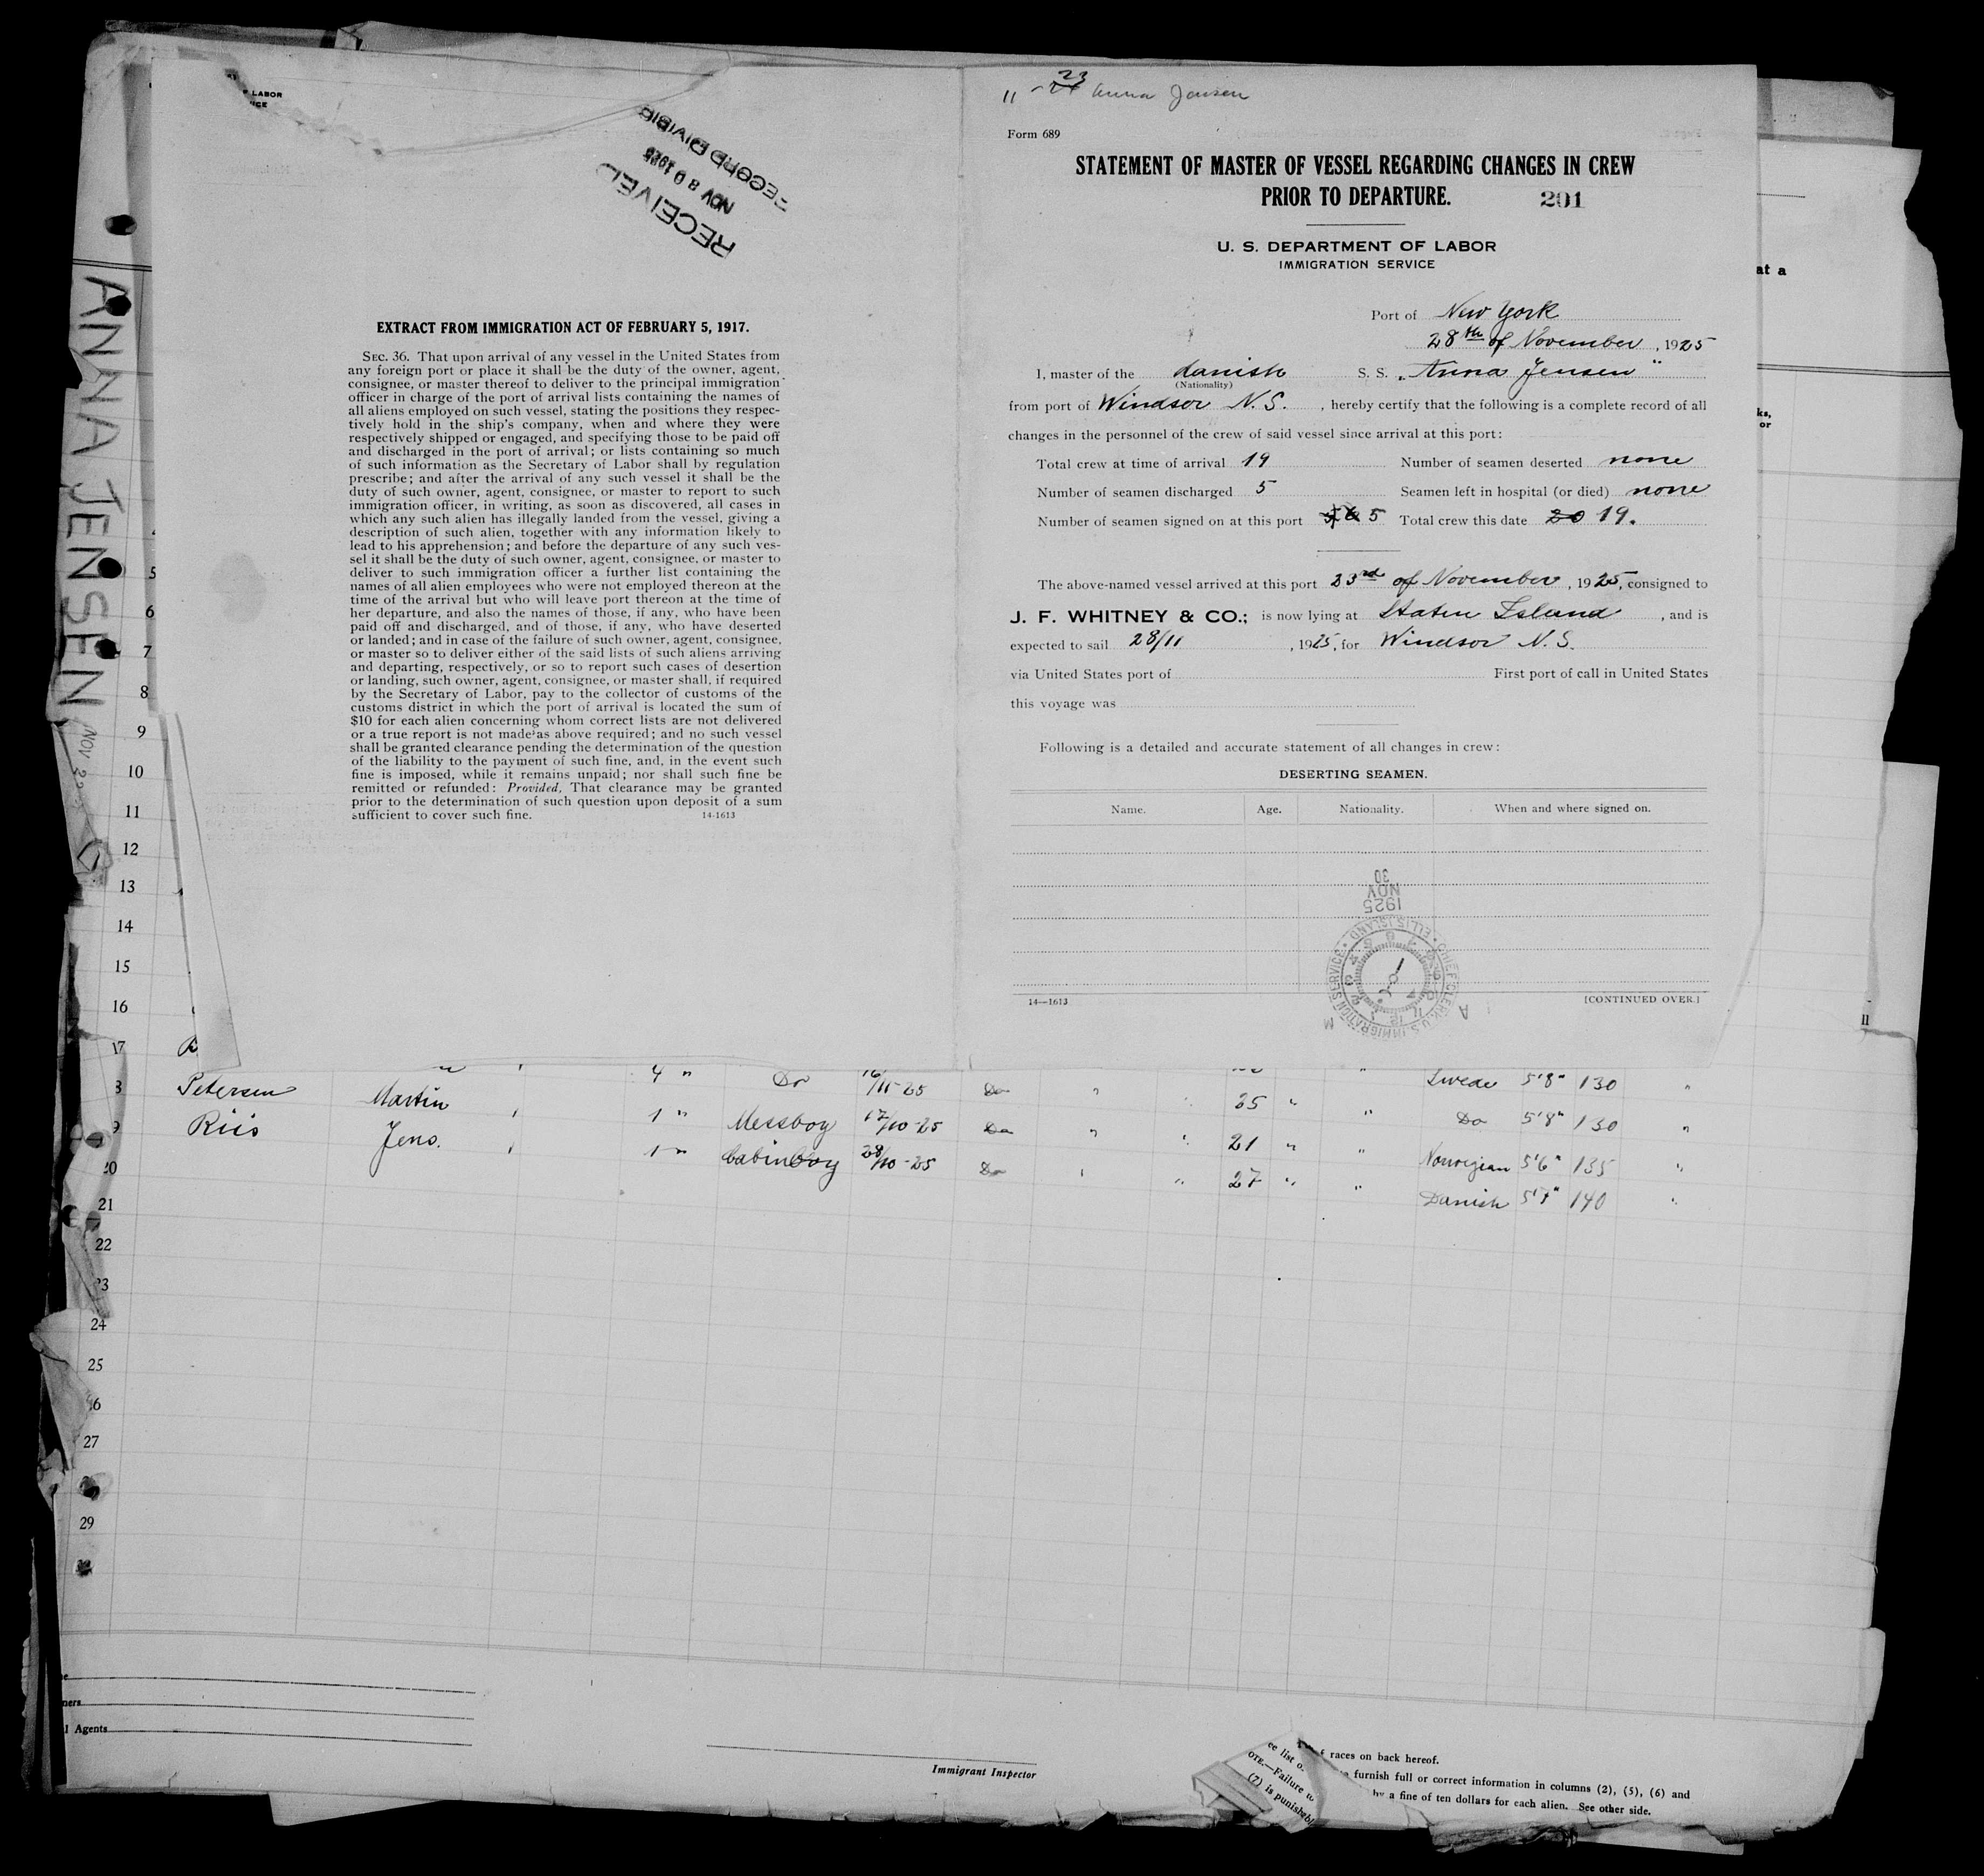 LABOR
ICE
RECEIVED
NOV 30 1925
RECORD DIVISIO
EXTRACT FROM IMMIGRATION ACT OF FEBRUARY 5, 1917.
SEC. 36. That upon arrival of any vessel in the United States from
any foreign port or place it shall be the duty of the owner, agent,
consignee, or master thereof to deliver to the principal immigration
officer in charge of the port of arrival lists containing the names of
all aliens employed on such vessel, stating the positions they respec-
tively hold in the ship's company, when and where they were
respectively shipped or engaged, and specifying those to be paid off
and discharged in the port of arrival; or lists containing so much
of such information as the Secretary of Labor shall by regulation
prescribe; and after the arrival of any such vessel it shall be the
duty of such owner, agent, consignee, or master to report to such
immigration officer, in writing, as soon as discovered, all cases in
which any such alien has illegally landed from the vessel, giving a
description of such alien, together with any information likely to
lead to his apprehension; and before the departure of any such ves-
sel it shall be the duty of such owner, agent, consignee, or master to
deliver to such immigration officer a further list containing the
names of all alien employees who were not employed thereon at the
time of the arrival but who will leave port thereon at the time of
her departure, and also the names of those, if any, who have been
paid off and discharged, and of those, if any, who have deserted
or landed; and in case of the failure of such owner, agent, consignee,
or master so to deliver either of the said lists of such aliens arriving
and departing, respectively, or so to report such cases of desertion
or landing, such owner, agent, consignee, or master shall, if required
by the Secretary of Labor, pay to the collector of customs of the
customs district in which the port of arrival is located the sum of
$10 for each alien concerning whom correct lists are not delivered
or a true report is not made as above required; and no such vessel
shall be granted clearance pending the determination of the question
of the liability to the payment of such fine, and, in the event such
fine is imposed, while it remains unpaid; nor shall such fine be
remitted or refunded: Provided, That clearance may be granted
prior to the determination of such question upon deposit of a sum
sufficient to cover such fine. 14-1613
11 - 23 Anna Jensen
Form 689
STATEMENT OF MASTER OF VESSEL REGARDING CHANGES IN CREW
PRIOR TO DEPARTURE. 201
U. S. DEPARTMENT OF LABOR
IMMIGRATION SERVICE
Port of New York
28th of November, 1925
I, master of the danish S. S. "Anna Jensen"
(Nationality)
from port of Windsor N.S., hereby certify that the following is a complete record of all
changes in the personnel of the crew of said vessel since arrival at this port:
Total crew at time of arrival 19 Number of seamen deserted none
Number of seamen discharged 5 Seamen left in hospital (or died) none
Number of seamen signed on at this port 5 Total crew this date 20 19.
The above-named vessel arrived at this port 23rd of November, 1925, consigned to
J. F. WHITNEY & CO.; is now lying at Staten Island, and is
expected to sail 28/11, 1925, for Windsor N.S.
via United States port of First port of call in United States
this voyage was
Following is a detailed and accurate statement of all changes in crew:
DESERTING SEAMEN.
Name. Age. Nationality. When and where signed on.
1925
NOV
30
CHIEF CLERK U.S. IMMIGRATION SERVICE • ELLIS ISLAND •
A M
14—1613 [CONTINUED OVER.]
ANNA JENSEN
at a
ks,
or
11
5
6
7
8
9
10
11
12
13
14
15
16
17
4 " Do 16/11-25 Do " Swede 5'8" 130 "
Petersen Martin 1 " Messboy 17/10-25 Do " 25 " " Do 5'8" 130 "
Riis Jens. 1 " Cabinboy 28/10-25 Do " 21 " " Norwegian 5'6" 135 "
27 " " Danish 5'7" 140 "
20
21
22
23
24
25
26
27
29
ners
l Agents
Immigrant Inspector
ce list o
races on back hereof.
OTE.—Failure
furnish full or correct information in columns (2), (5), (6) and
(7) is punishabl
by a fine of ten dollars for each alien. See other side.